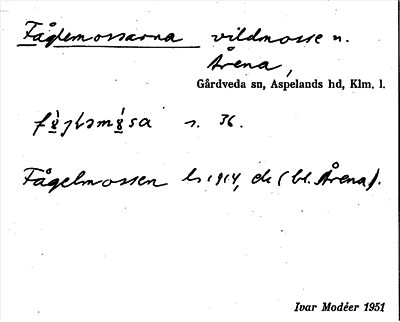 Fåglemossarna vildmosse n.
Årena,
Gårdveda sn, Aspelands hd, Klm. l.
s. 36.
Fågelmossen ls 1914, ek (bl. Årena).
Ivar Modéer 1951